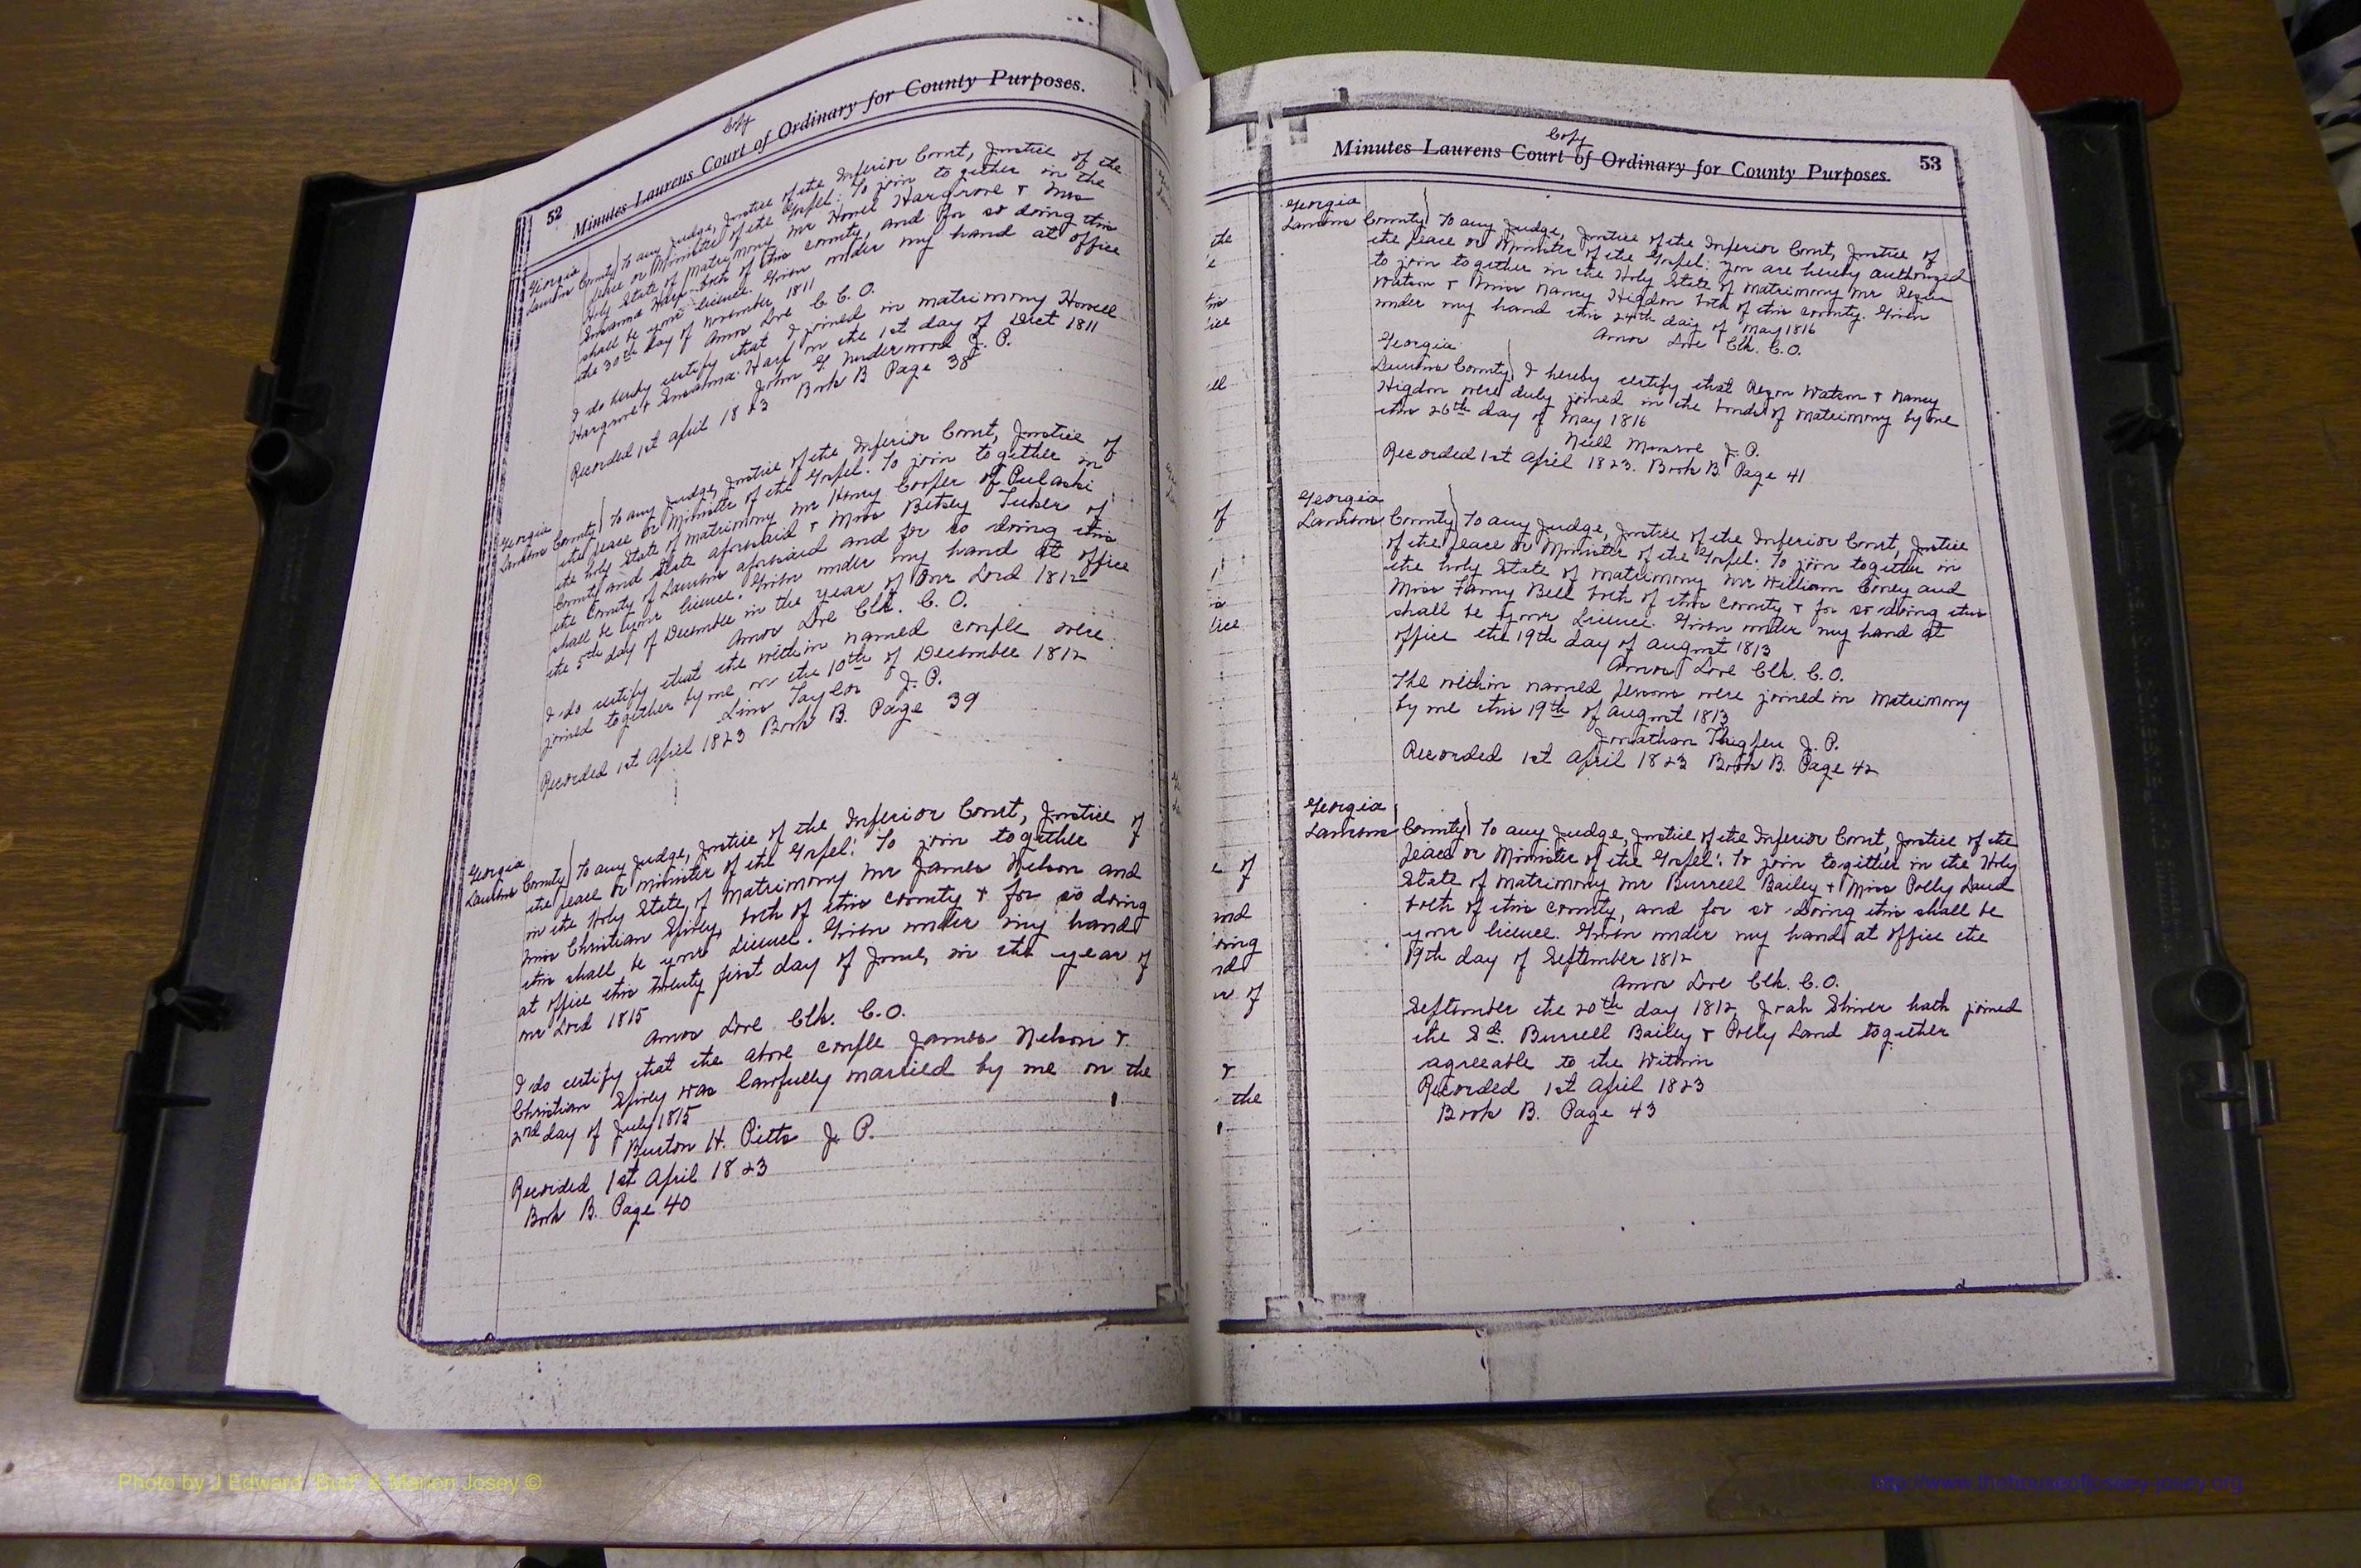 52 Minutes Laurens Court of Ordinary for County Purposes.
Copy
Georgia
Laurens County) To any Judge, Justice of the Inferior Court, Justice of the
peace or Minister of the Gospel: To join together in the
Holy State of Matrimony Mr Howell Hargrove & Mrs
Susanna Harp both of this county, and for so doing this
shall be your licence. Given under my hand at office
the 30th day of November 1811
Amos Love C. C. O.
I do hereby certify that I joined in matrimony Howell
Hargrove & Susanna Harp on the 1st day of Dect 1811
John G Underwood J. P.
Recorded 1st April 1823 Book B Page 38
Georgia
Laurens County) To any Judge, Justice of the Inferior Court, Justice of
the peace or Minister of the Gospel: To join together in
the holy State of matrimony Mr Henry Cooper of Pulaski
County and State aforesaid & Miss Betsey Tuker of
the County of Laurens aforesaid and for so doing this
shall be your licence. Given under my hand at office
the 5th day of December in the year of Our Lord 1812
Amos Love Clk. C. O.
I do certify that the within named couple were
joined together by me on the 10th of December 1812
Linn Taylor J. P.
Recorded 1st April 1823 Book B. Page 39
Georgia
Laurens County) To any Judge, Justice of the Inferior Court, Justice of
the peace or minister of the Gospel: To join together
in the Holy State of Matrimony Mr James Nelson and
Miss Christian Spivey, both of this county & for so doing
this shall be your Licence. Given under my hand
at office this twenty first day of June, in the year of
our Lord 1815
Amos Love Clk. C. O.
I do certify that the above couple James Nelson &
Christian Spivey was lawfully married by me on the
2nd day of July 1815
Burton H. Pitts J. P.
Recorded 1st April 1823
Book B. Page 40
Copy
Minutes Laurens Court of Ordinary for County Purposes. 53
Georgia
Laurens County) To any Judge, Justice of the Inferior Court, Justice of
the peace or Minister of the Gospel: you are hereby authorized
to join together in the Holy State of Matrimony Mr Rezin
Watson & Miss Nancy Higdon both of this county. Given
under my hand this 24th day of May 1816
Amos Love Clk. C. O.
Georgia
Laurens County) I hereby certify that Rezon Watson & Nancy
Higdon were duly joined in the bonds of matrimony by me
this 26th day of May 1816
Neill Munroe J. P.
Recorded 1st April 1823. Book B. Page 41
Georgia
Laurens County) To any Judge, Justice of the Inferior Court, Justice
of the peace or Minister of the Gospel: To join together in
the holy State of matrimony Mr William Coney and
Miss Fanny Bell both of this county & for so doing this
shall be your Licence. Given under my hand at
office the 19th day of August 1813
Amos Love Clk. C. O.
The within named persons were joined in Matrimony
by me this 19th of August 1813
Jonathan Thigpen J. P.
Recorded 1st April 1823 Book B. Page 42
Georgia
Laurens County) To any Judge, Justice of the Inferior Court, Justice of the
peace or Minister of the Gospel: To join together in the Holy
State of Matrimony Mr Burrell Bailey & Miss Polly Land
both of this county, and for so doing this shall be
your licence. Given under my hand at office the
19th day of September 1812
Amos Love Clk. C. O.
September the 20th day 1812 Joah Shiver hath joined
the Sd. Burrell Bailey & Polly Land together
agreeable to the Within
Recorded 1st April 1823
Book B. Page 43
Photo by J Edward "Bud" & Marion Josey ©
http://www.thehouseofjossey-josey.org